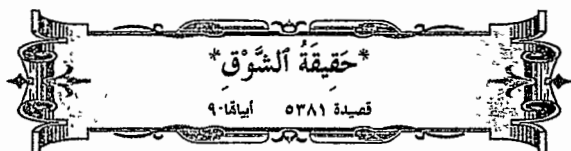 *حَقِيقَةُ ٱلشَّوْقِ*
قصيدة ٥٣٨١ أبياتها-٩